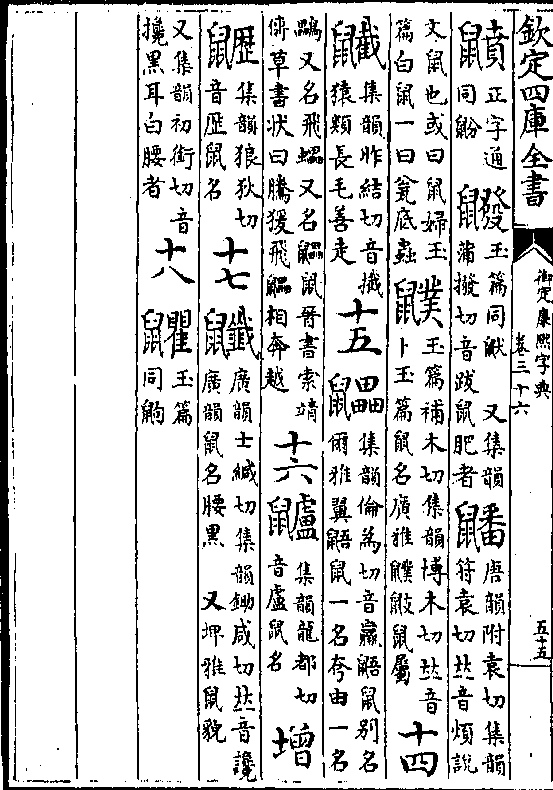 欽定四庫全書
御定康熙字典
卷三十六
五十五
正字通
同鼢
玉篇同鼣 又集韻
蒲撥切音跋鼠肥者
䶕
唐韻附袁切集韻
符袁切𠀤音煩說
文鼠也或曰鼠婦玉
篇白鼠一曰瓮底蟲
玉篇補木切集韻博木切𠀤音
卜玉篇鼠名廣雅鼠屬
十四
集韻昨結切音截
猿類長毛善走
十五
鼺
集韻倫為切音羸鼯鼠别名
爾雅翼鼯鼠一名夸由一名
鸓又名飛蠝又名鼺鼠晉書索靖
傳草書狀曰騰猨飛鼺相奔越
十六
集韻龍都切
音盧鼠名
增
集韻狼狄切
音歴鼠名
十七
廣韻士緘切集韻鋤咸切𠀤音讒
廣韻鼠名腰黑 又埤雅鼠貌
又集韻初銜切音
攙黑耳白腰者
十八
玉篇
同鼩